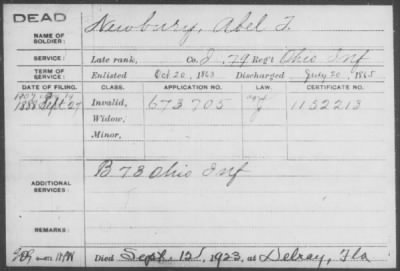 DEAD
NAME OF SOLDIER: Newbury, Abel T.
SERVICE: Late rank, Co. I, 79 Reg't Ohio Inf
TERM OF SERVICE: Enlisted Oct 20, 1863 Discharged July 20, 1865
DATE OF FILING. CLASS. APPLICATION NO. LAW. CERTIFICATE NO.
1888 Sept 27 Invalid, 673705 1152213
Widow,
Minor,
ADDITIONAL SERVICES: B 73 Ohio Inf
REMARKS:
Died Sept. 12, 1923, at Delray, Fla